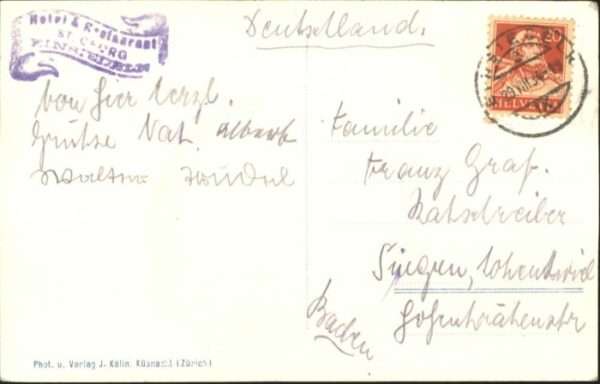 Hotel & Restaurant
St. GEORG
EINSIEDELN
Deutschland.
HELVETIA
von hier herzl.
Grüsse Nat. Albert
Walter
Familie
Franz Graf.
Ratschreiber
Singen, Hohentwiel
Hohenkrähenstr
Baden
Phot. u. Verlag J. Kälin, Küsnacht (Zürich)